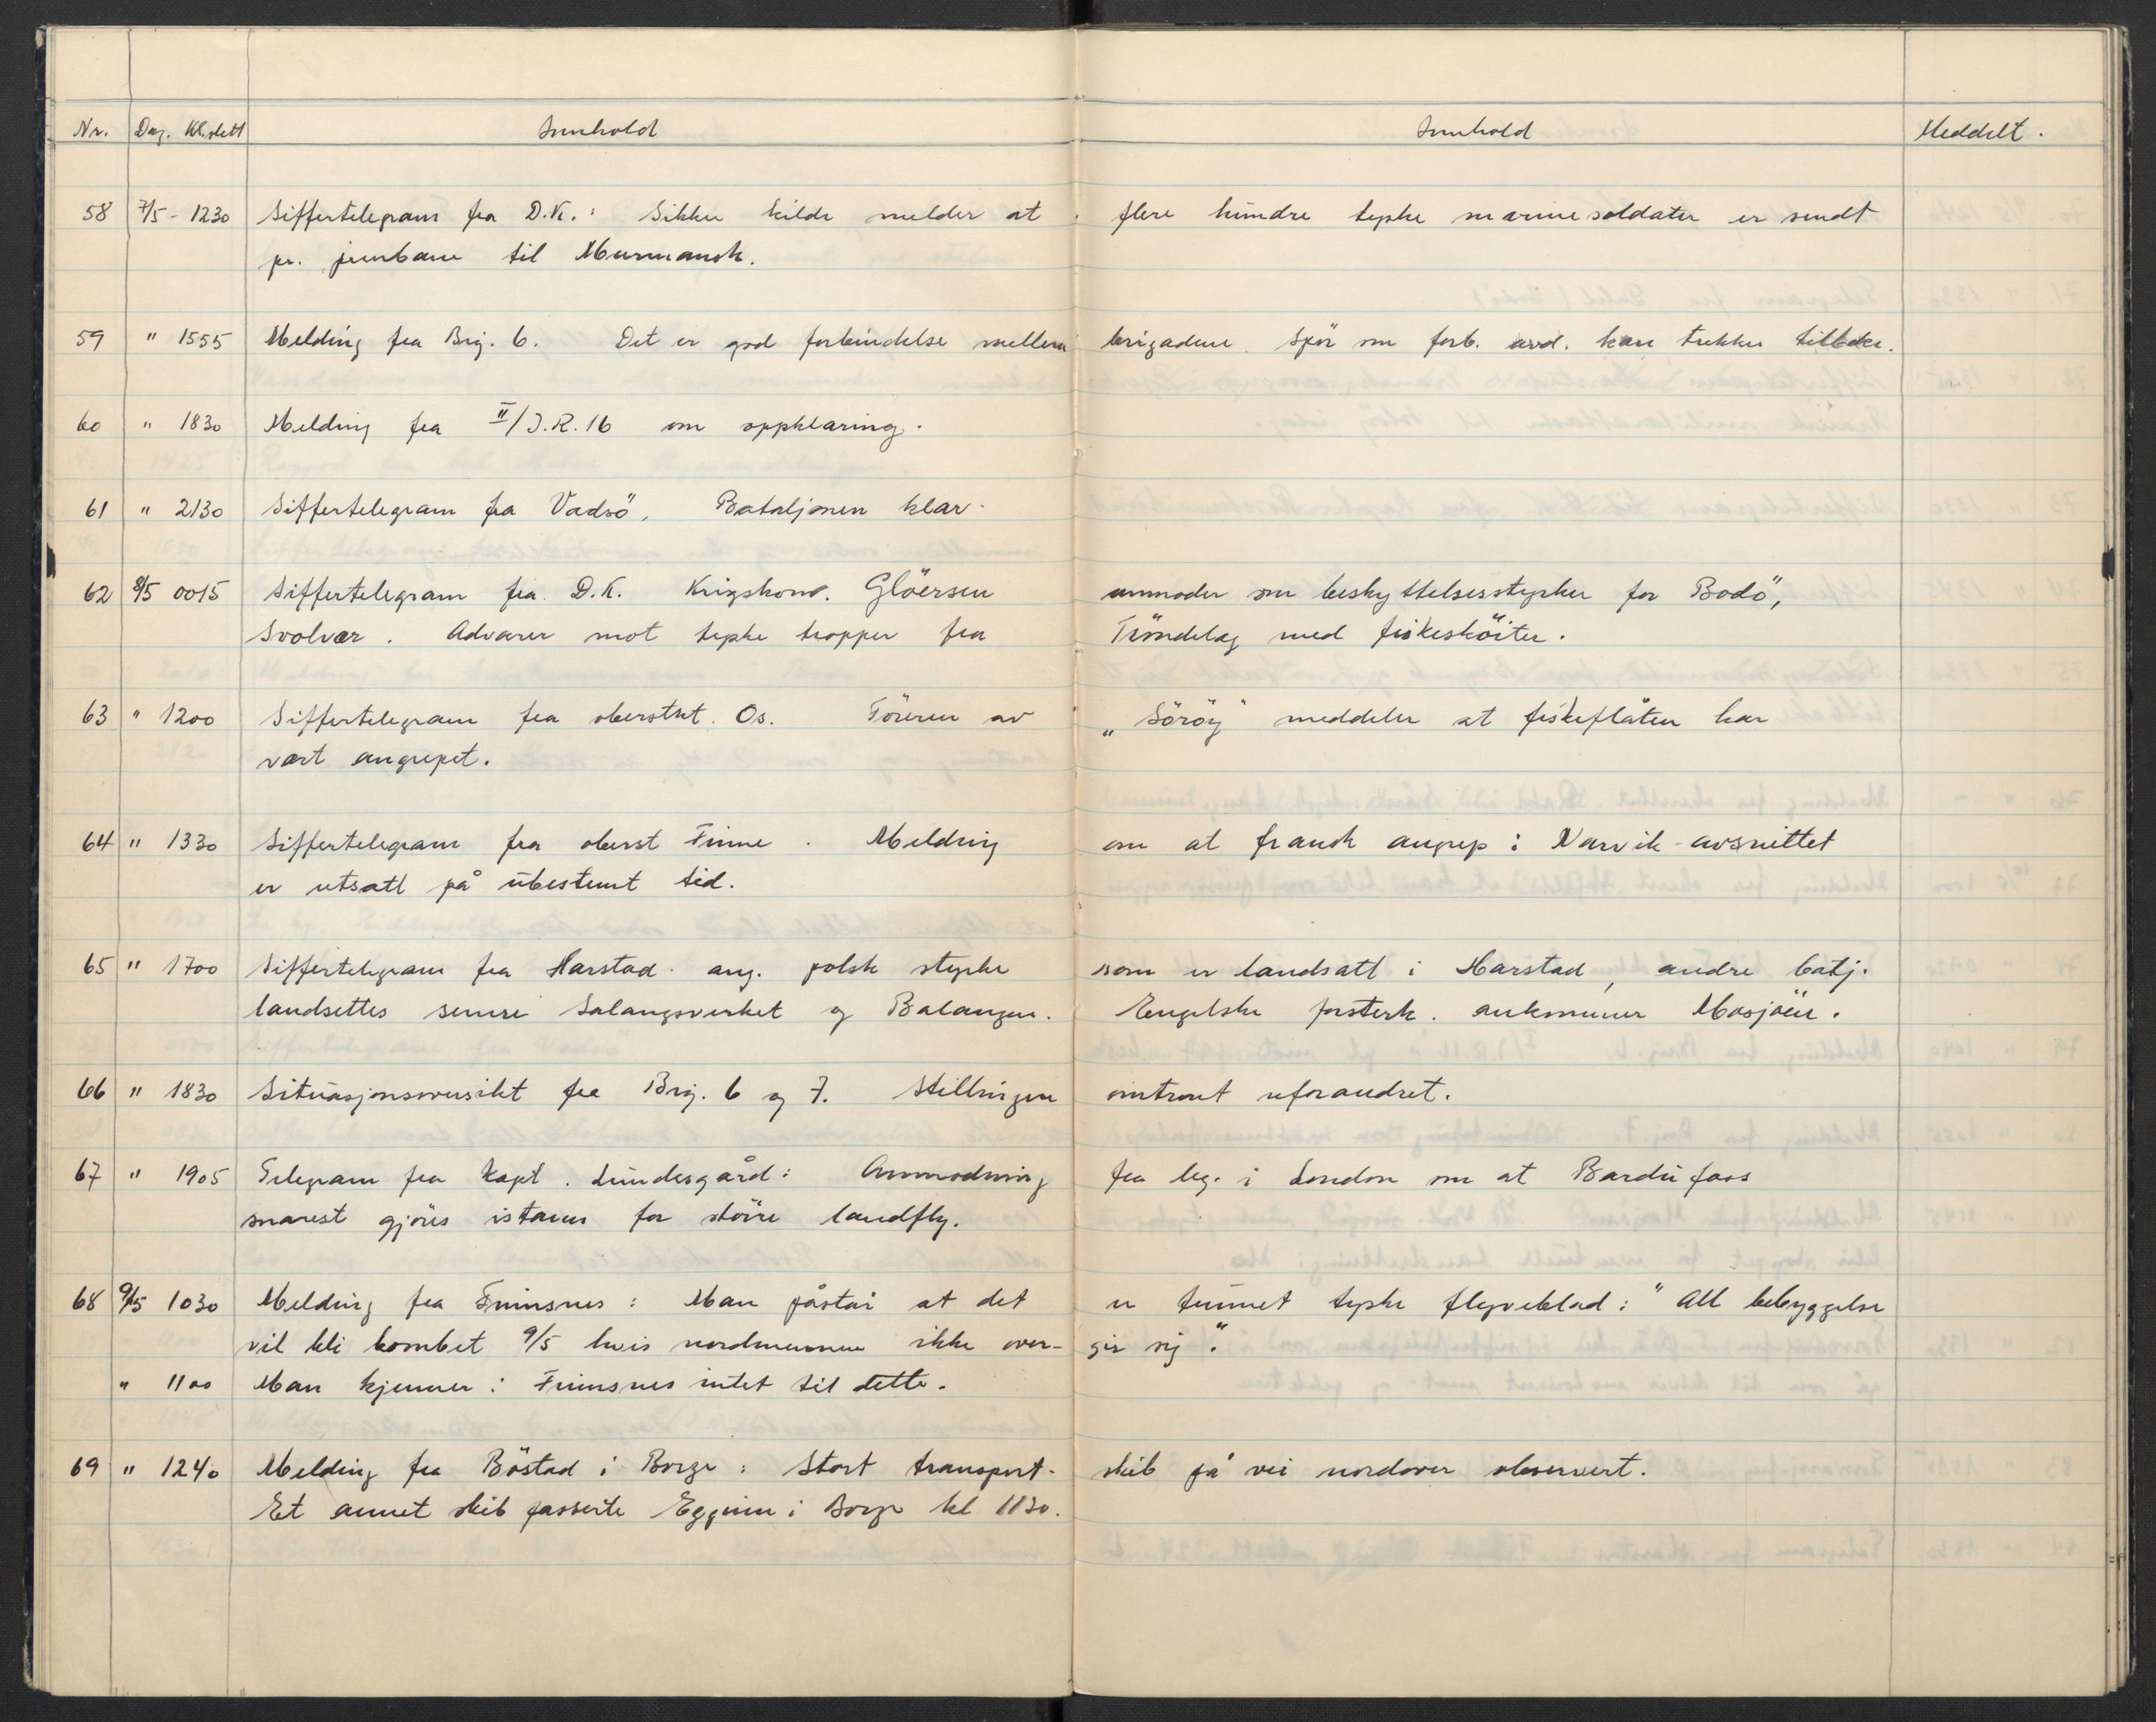 Nr. Dag. Kl.slett Innhold Innhold Meddelt.
58 7/5 - 1230 Siffertelegram fra D.K.: Sikker kilde melder at flere hundre tyske marinesoldater er sendt
pr. jernbane til Murmansk.
59 " 1555 Melding fra Brig. 6. Det er god forbindelse mellem brigadene. Spör om forb. avd. kan trekkes tilbake.
60 " 1830 Melding fra II/I.R. 16 om oppklaring.
61 " 2130 Siffertelegram fra Vadsö. Bataljonen klar.
62 8/5 0015 Siffertelegram fra D.K. Krigskom. Glöersen anmoder om beskyttelsesstyrker for Bodö,
Svolvær. Advarer mot tyske tropper fra Tröndelag med fiskesköiter.
63 " 1200 Siffertelegram fra oberstlt. Os. Föreren av "Söröy" meddeler at fiskeflåten har
vært angrepet.
64 " 1330 Siffertelegram fra oberst Finne. Melding om at fransk angrep i Narvik-avsnittet
er utsatt på ubestemt tid.
65 " 1700 Siffertelegram fra Harstad ang. polsk styrke som er landsatt i Harstad, andre batj.
landsettes senere Salangsverket og Balangen. Engelske forsterk. ankommer Mosjöen.
66 " 1830 Situasjonsoversikt fra Brig. 6 og 7. Stillingen omtrent uforandret.
67 " 1905 Telegram fra kapt. Lundesgård: Anmodning fra leg. i London om at Bardufoss
snarest gjöres istann for större landfly.
68 9/5 1030 Melding fra Finnsnes: Man påstår at det er funnet tyske flyveblad: "All bebyggelse
vil bli bombet 9/5 hvis nordmennene ikke over- gir sig".
" 1100 Man kjenner i Finnsnes intet til dette.
69 " 1240 Melding fra Böstad i Borge: Stort transport- skib på vei nordover observert.
Et annet skib passerte Eggum i Borge kl 1130.